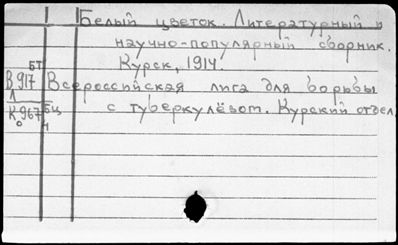 Белый цветок. Литературный и
научно-популярный сборник.
Курск, 1914.
БТ
В 917 Всероссийская лига для борьбы
Л
К 967 БЦ с туберкулёзом. Курский отдел.
о ч